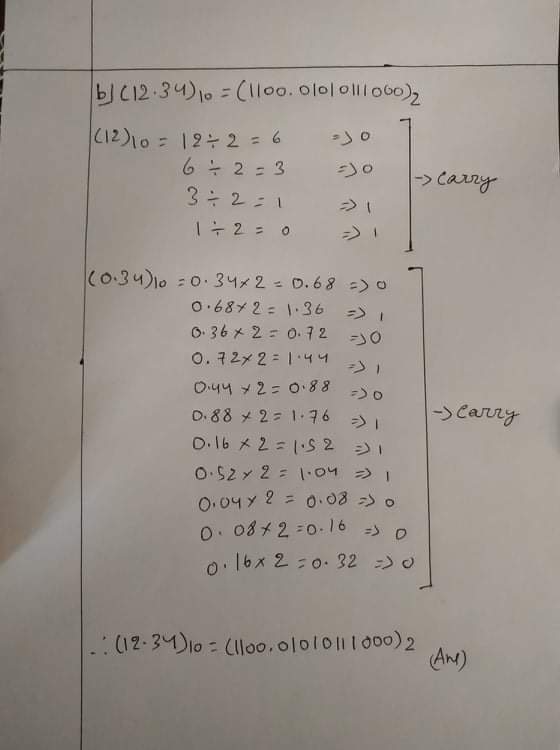 b) (12.34)10 = (1100.01010111000)2
(12)10 = 12 ÷ 2 = 6 => 0
6 ÷ 2 = 3 => 0
3 ÷ 2 = 1 => 1
1 ÷ 2 = 0 => 1
-> Carry
(0.34)10 = 0.34 × 2 = 0.68 => 0
0.68 × 2 = 1.36 => 1
0.36 × 2 = 0.72 => 0
0.72 × 2 = 1.44 => 1
0.44 × 2 = 0.88 => 0
0.88 × 2 = 1.76 => 1
0.16 × 2 = 1.52 => 1
0.52 × 2 = 1.04 => 1
0.04 × 2 = 0.08 => 0
0.08 × 2 = 0.16 => 0
0.16 × 2 = 0.32 => 0
-> Carry
∴ (12.34)10 = (1100.01010111000)2 (Ans)